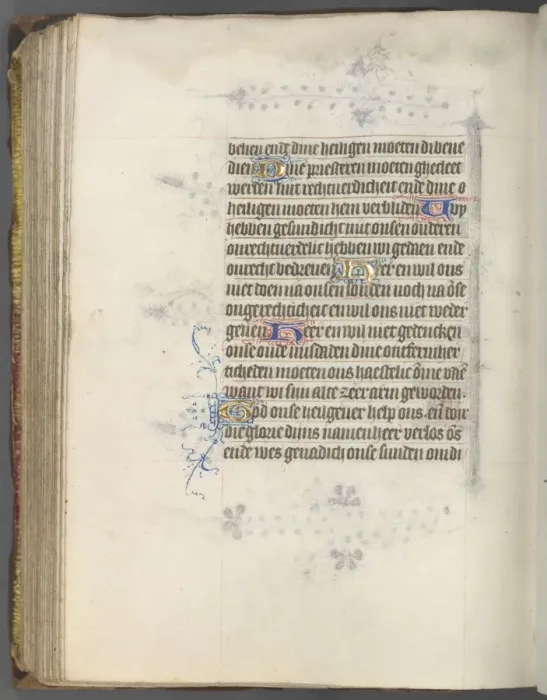 ende dine heiligen moeten di bene
dien Dine priesteren moeten ghecleet
werden mit rechtuerdicheit ende dine
heiligen moeten hem verbliden Wy
hebben gesundicht mit onsen ouderen
onrechtuerdelic hebben wi gedaen ende
onrecht bedreuen Heer en wil ons
niet doen na onsen sonden noch na õse
ongerechticheit en wil ons niet weder
geuen Heer en wil niet gedencken
onse oude misdaden dine ontfermher
ticheden moeten ons haestelic
want wi sijn alte zeer arm geworden.
God onse heilgeuer help ons. eñ
die glorie dijns namen heer verlos õs
ende wes genadich onse sunden om di